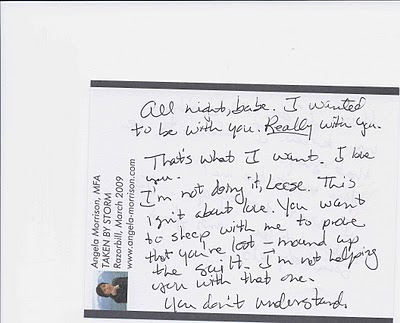 All night, babe. I wanted
to be with you. Really with you.
That's what I want. I love
you.
I'm not doing it, Leese. This
isn't about love. You want
to sleep with me to prove
that you're lost – mound up
the guilt. I'm not helping
you with that one.
You don't understand.
Angela Morrison, MFA
TAKEN BY STORM
Razorbill, March 2009
www.angela-morrison.com